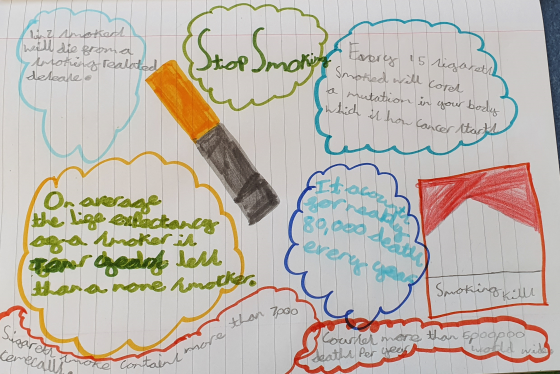 1 in 2 smokers
will die from a
smoking realated
deseace.
Stop Smoking
Every 15 sigarets
smoked will cord
a mutation in your body
which is how cancer starts
On average
the life exlectancy
of a smoker is
Ten years less
than a none smoker.
It acounts
for nearly
80,000 deaths
every year
Smoking kills
Sigaret smoke contains more than 7000
cemecalls.
Courses more than 5000000
deaths per year world wide